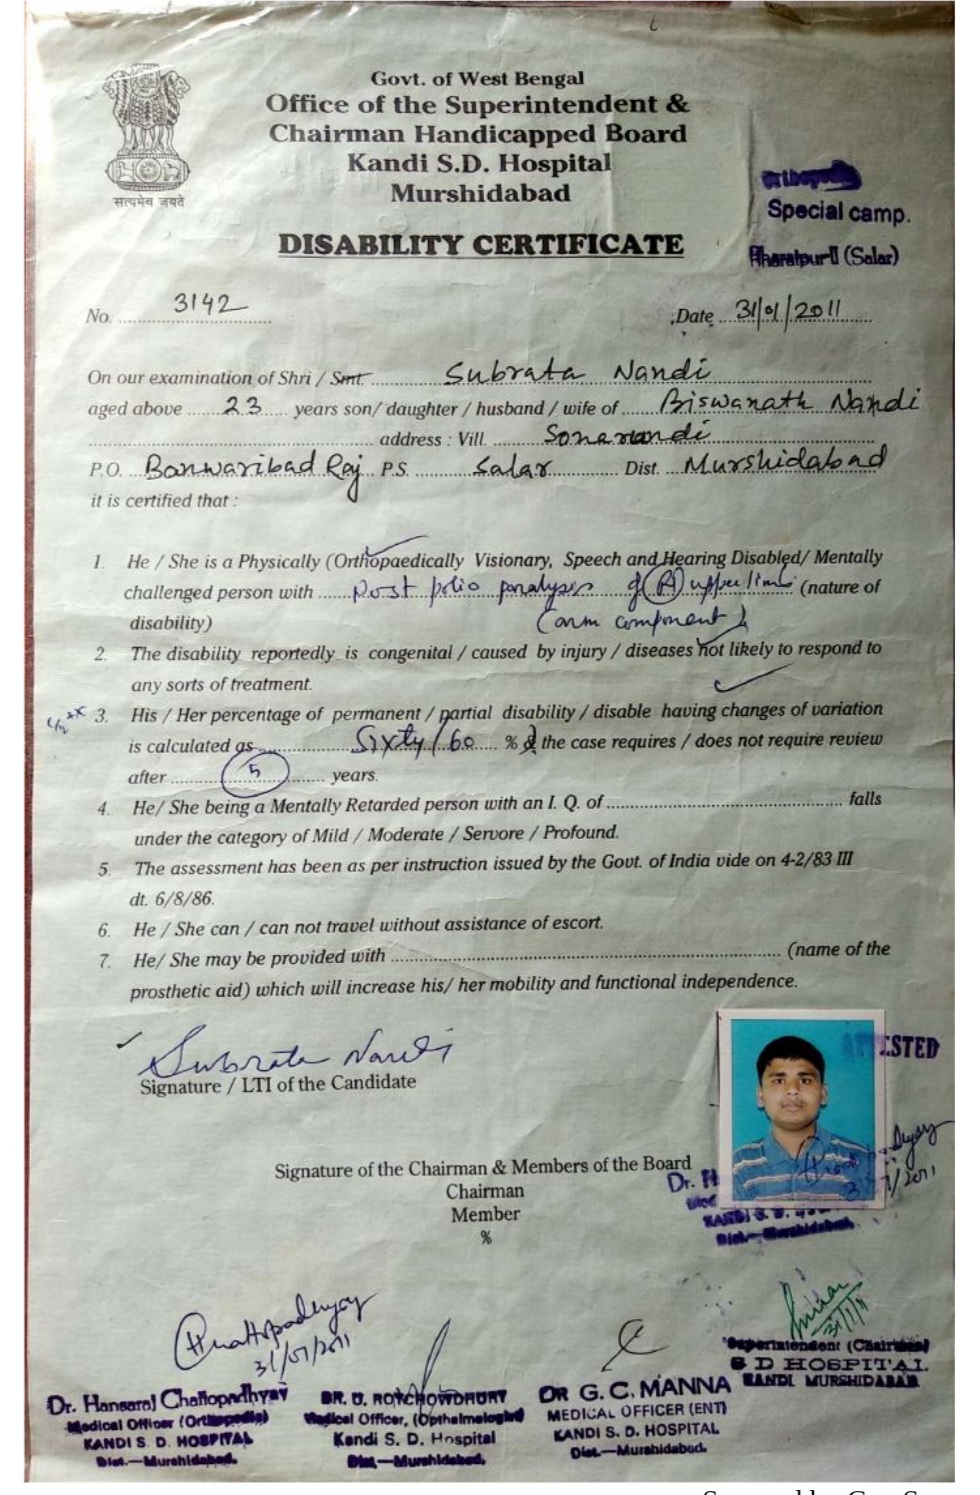 Govt. of West Bengal
Office of the Superintendent &
Chairman Handicapped Board
Kandi S.D. Hospital
Murshidabad
सत्यमेव जयते
Special camp.
Bharatpur-II (Salar)
DISABILITY CERTIFICATE
No. 3142 Date 31/01/2011
On our examination of Shri / Smt. Subrata Nandi
aged above 23 years son/ daughter / husband / wife of Biswanath Nandi
address : Vill. Sonarundi
P.O. Banwaribad Raj P.S. Salar Dist. Murshidabad
it is certified that :
1. He / She is a Physically (Orthopaedically Visionary, Speech and Hearing Disabled/ Mentally
challenged person with Post polio paralysis of (R) upper limb (nature of
disability) (arm component)
2. The disability reportedly is congenital / caused by injury / diseases not likely to respond to
any sorts of treatment.
3. His / Her percentage of permanent / partial disability / disable having changes of variation
is calculated as Sixty / 60 % & the case requires / does not require review
after 5 years.
4. He/ She being a Mentally Retarded person with an I. Q. of falls
under the category of Mild / Moderate / Servore / Profound.
5. The assessment has been as per instruction issued by the Govt. of India vide on 4-2/83 III
dt. 6/8/86.
6. He / She can / can not travel without assistance of escort.
7. He/ She may be provided with (name of the
prosthetic aid) which will increase his/ her mobility and functional independence.
ATTESTED
Subrata Nandi
Signature / LTI of the Candidate
Signature of the Chairman & Members of the Board
Chairman
Member
%
Dr. H
KANDI S. D.
Dist.—Murshidabad.
Chattopadhyay
31/01/2011
31/1/11
Superintendent (Chairman)
S D HOSPITAL
KANDI MURSHIDABAD
Dr. Hansaraj Chattopadhyay
Medical Officer (Orthopedic)
KANDI S. D. HOSPITAL
Dist.—Murshidabad.
DR. D. ROYCHOWDHURY
Medical Officer, (Opthalmologist)
Kandi S. D. Hospital
Dist.—Murshidabad.
DR G. C. MANNA
MEDICAL OFFICER (ENT)
KANDI S. D. HOSPITAL
Dist.—Murshidabad.